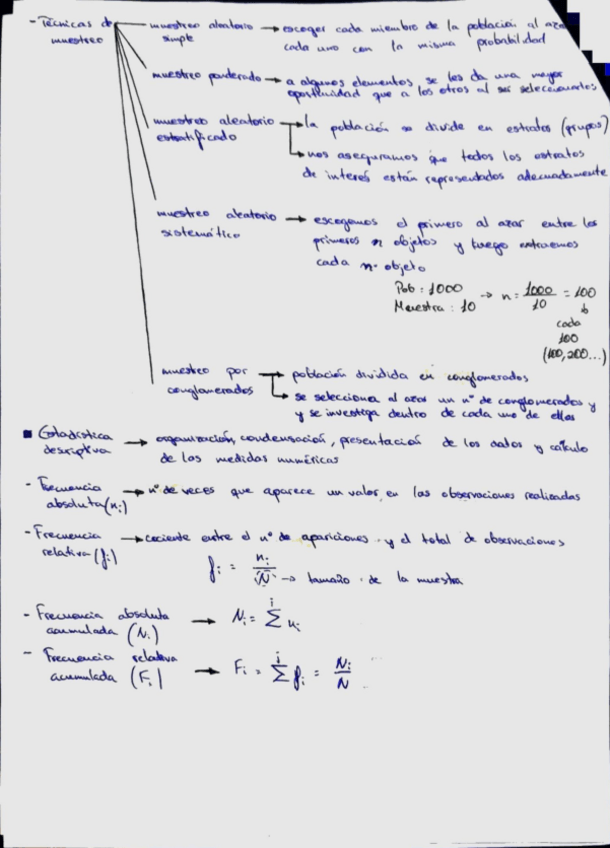 - Técnicas de muestreo
muestreo aleatorio simple → escoger cada miembro de la población al azar
cada uno con la misma probabilidad
muestreo ponderado → a algunos elementos se les da una mayor
oportunidad que a los otros al ser seleccionarlos
muestreo aleatorio estratificado → la población se divide en estratos (grupos)
→ nos aseguramos que todos los estratos
de interés están representados adecuadamente
muestreo aleatorio sistemático → escogemos el primero al azar entre los
primeros n objetos y luego extraemos
cada nº objeto
Pob: 1000
Muestra: 10
→ n = 1000/10 = 100
↓
cada
100
(100, 200...)
muestreo por conglomerados → población dividida en conglomerados
→ se selecciona al azar un nº de conglomerados y
y se investiga dentro de cada uno de ellos
■ Estadística descriptiva → organización, condensación, presentación de los datos y cálculo
de las medidas numéricas
- Frecuencia absoluta (ni) → nº de veces que aparece un valor en las observaciones realizadas
- Frecuencia relativa (fi) → cociente entre el nº de apariciones y el total de observaciones
fi = ni/N → tamaño de la muestra
- Frecuencia absoluta acumulada (Ni) → Ni = Σ ni
- Frecuencia relativa acumulada (Fi) → Fi = Σ fi = Ni/N